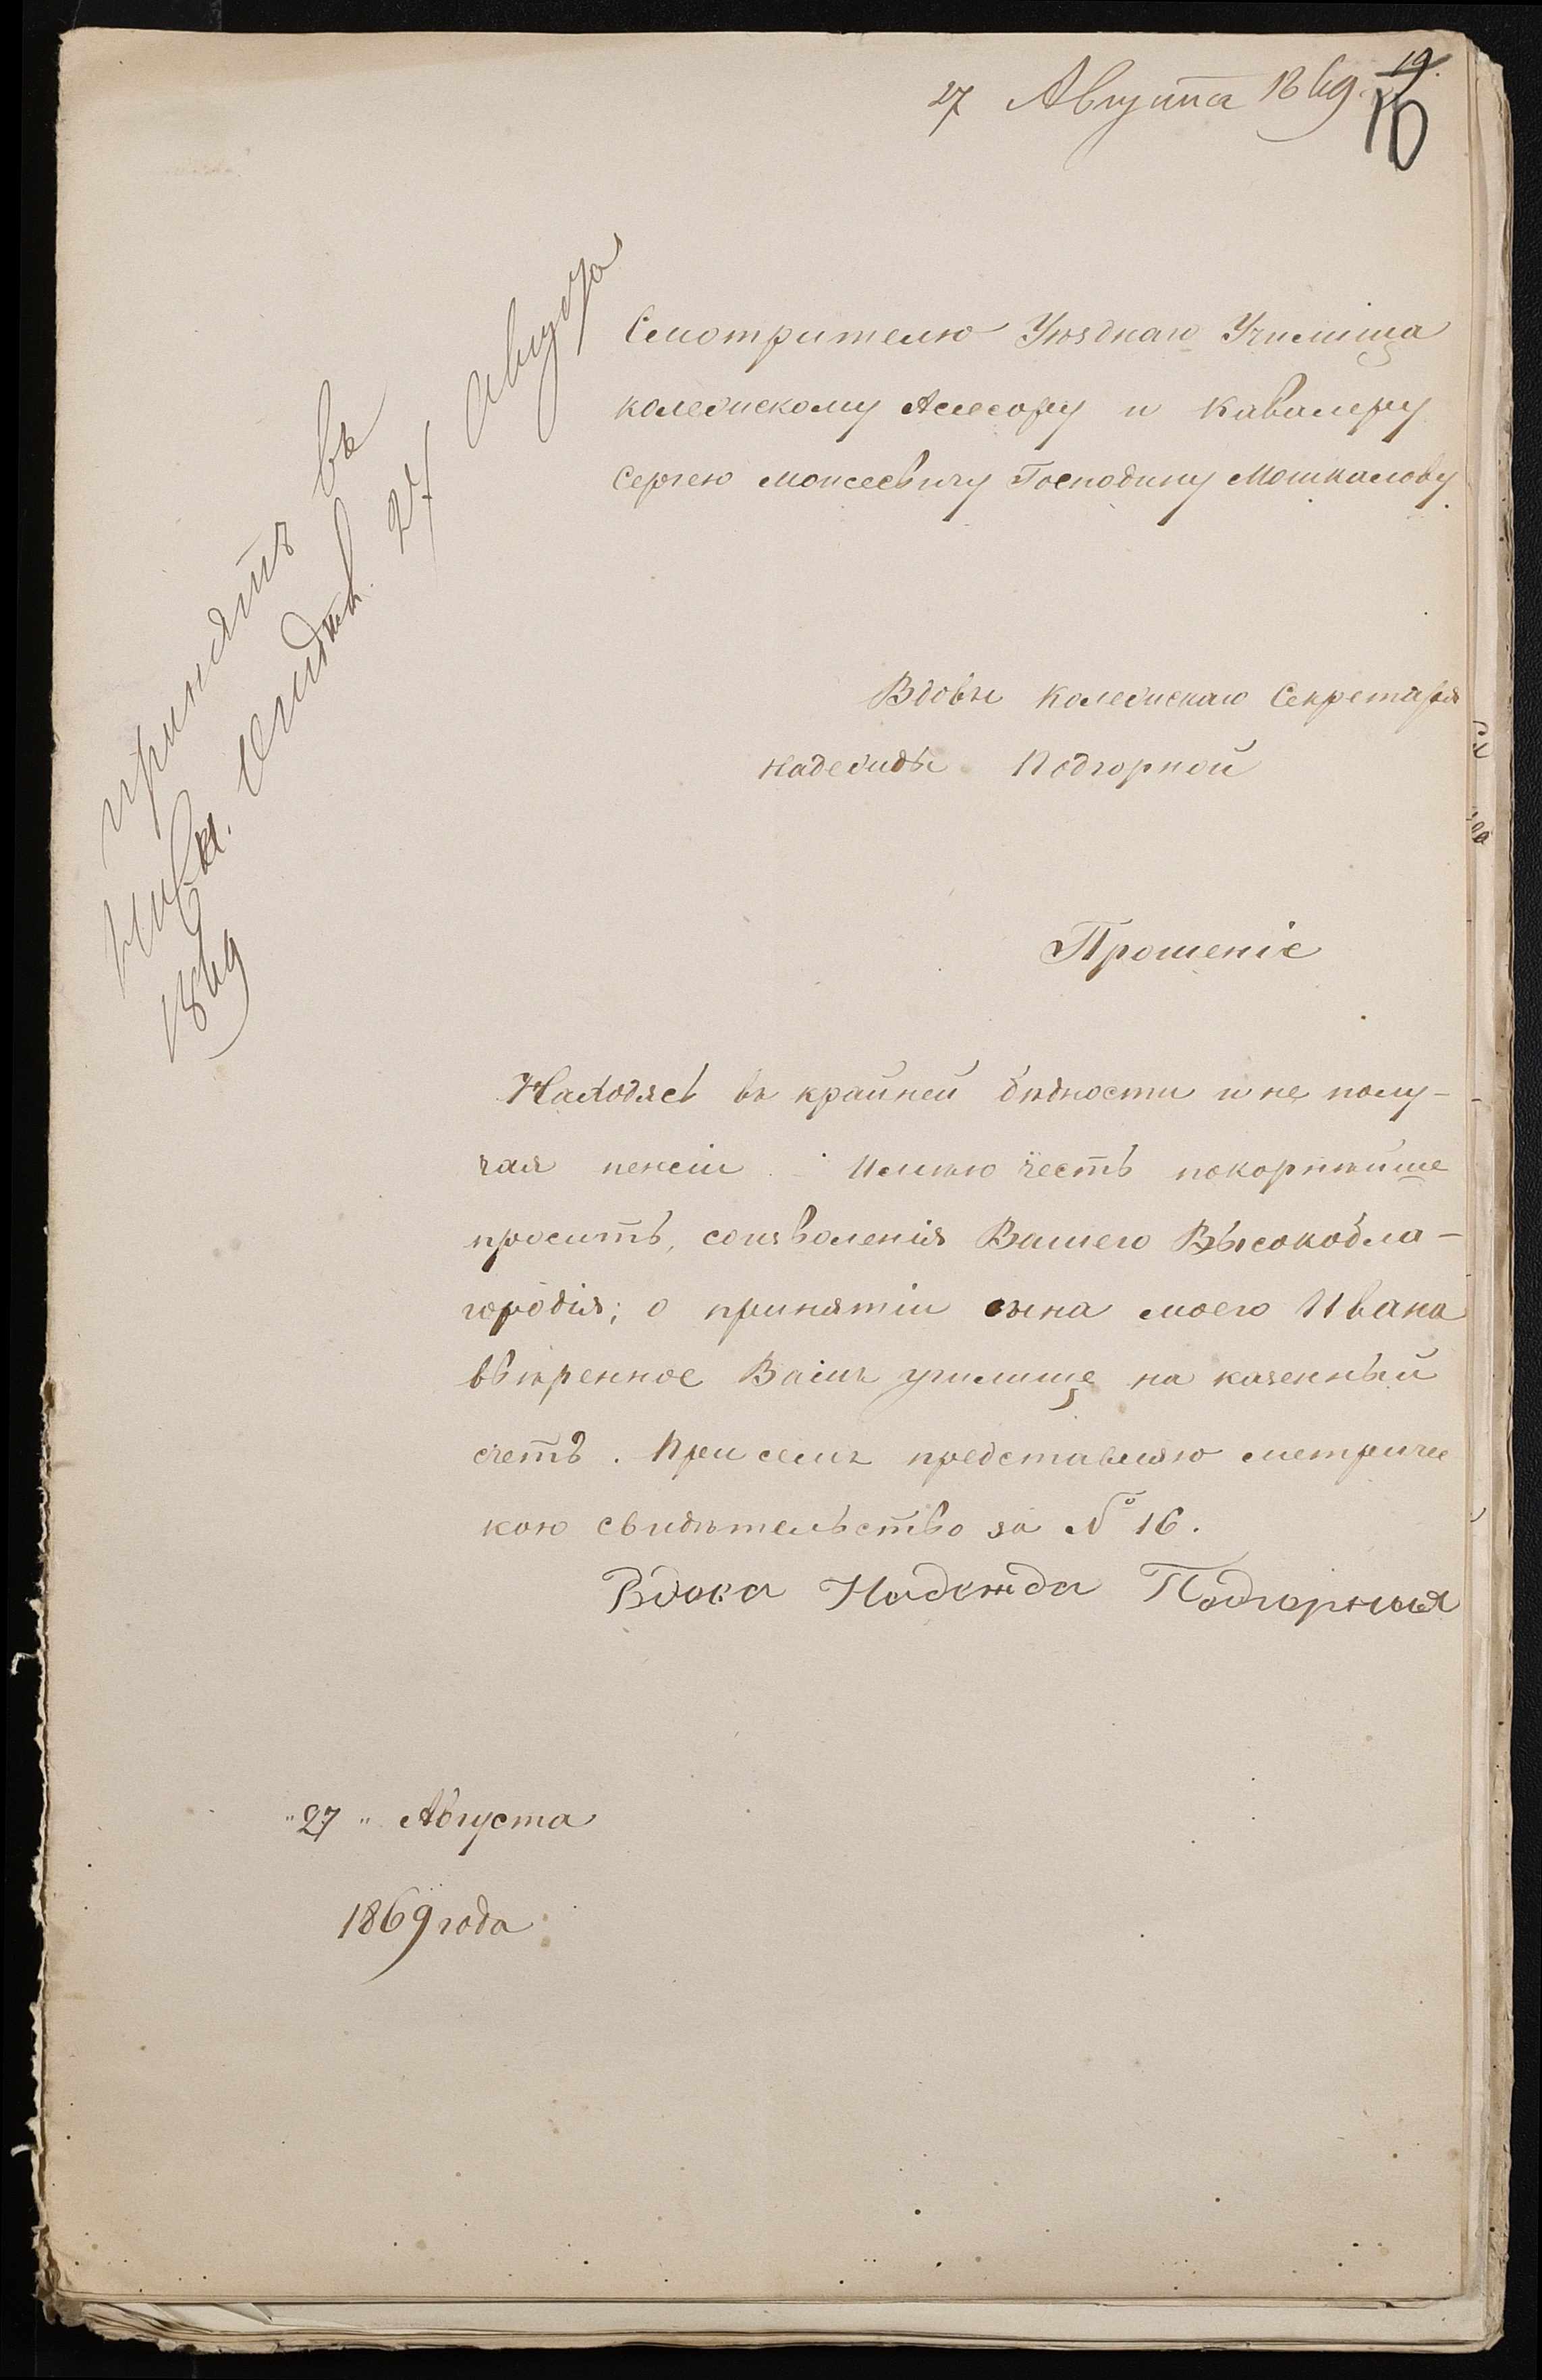 27 Августа 1869.
19.
10
принятъ въ
27 Августа
1869
Смотрителю Уѣзднаго Училища
колежскому Асесору и Кавалеру
Сергею Моисеевичу Господину Мошкалову
Вдовы Колежскаго Секретаря
Надежды Подгорной
Прошеніе
Находясь въ крайней бѣдности и не полу-
чая пенсіи Имѣю честь покорнѣйше
просить, соизволенія Вашего Высокобла-
городія; о принятіи сына моего Ивана
ввѣренное Вамъ училище на казенный
счетъ. При семъ представляю метричес
кою свидѣтельство за № 16.
Вдова Надежда Подгорная
"27" Августа
1869 года